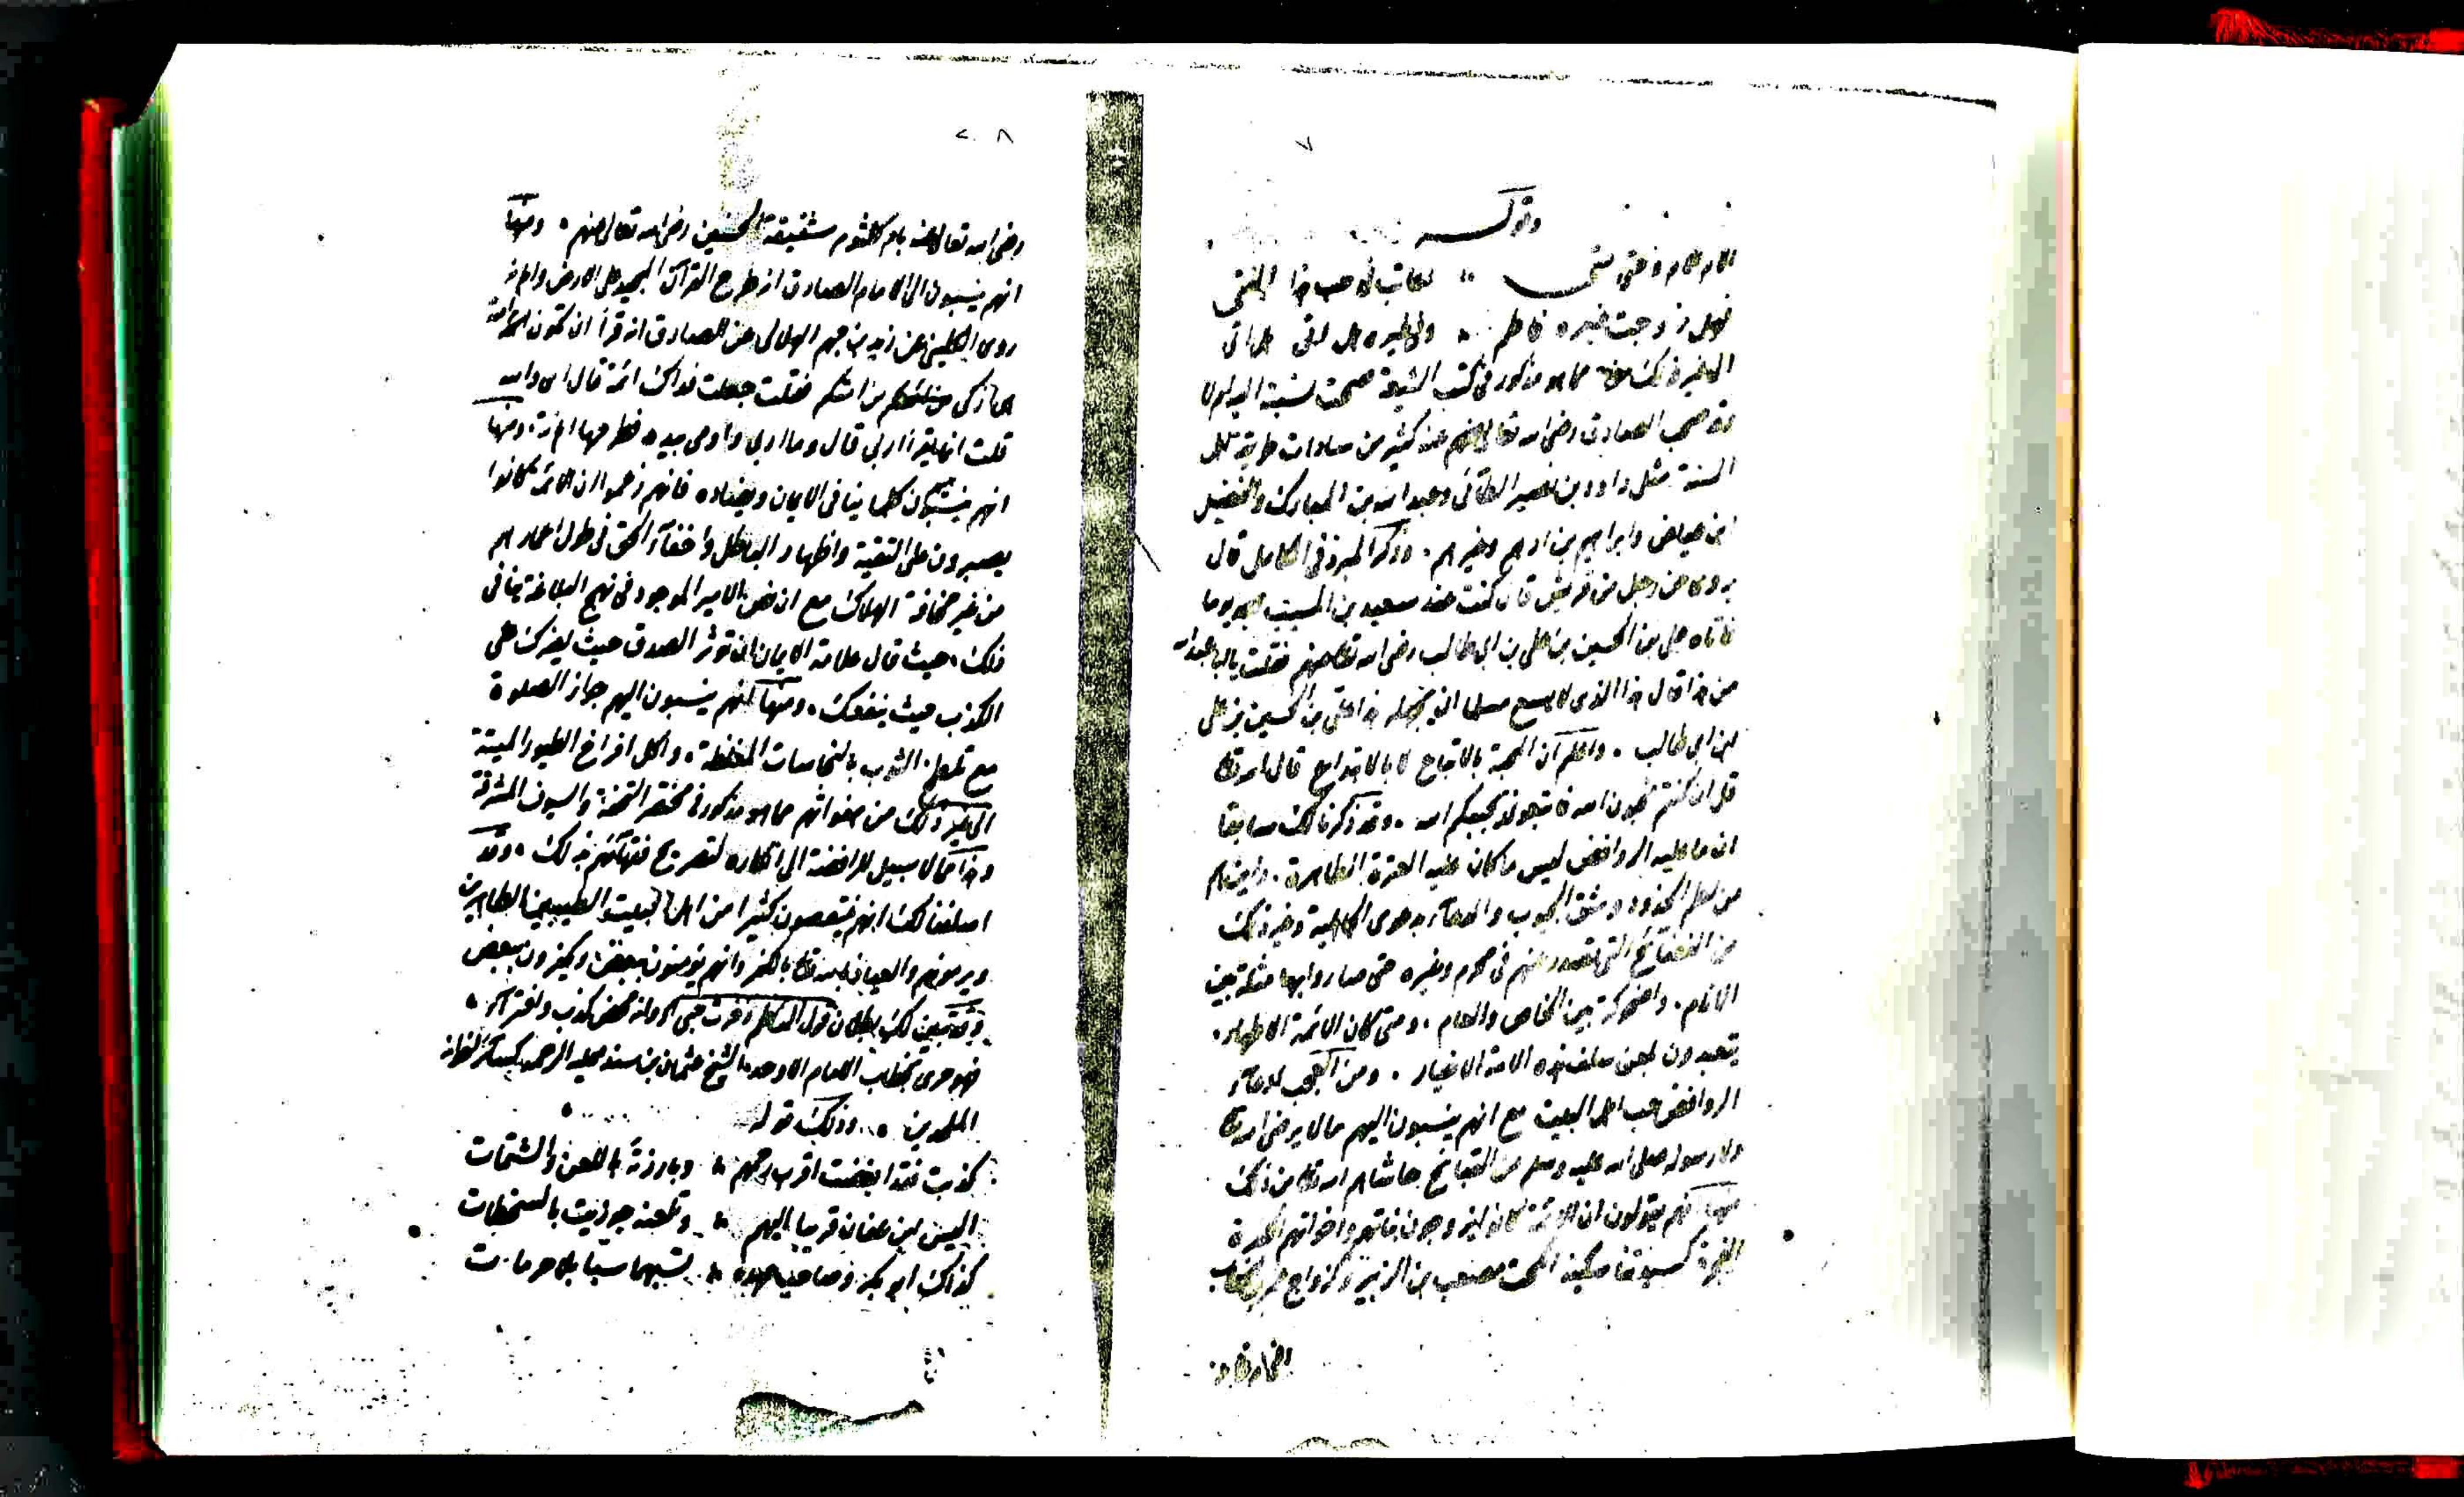 ٧
وقوله
الام الام وحتى متى ۞ اعاتب في حب هذا الفتى
فهل زوجت غيره فاطم ۞ وفي غيره هل اتى هل اتى
الى غير ذلك مما هو مذكور في كتب الشيعة صحت نسبته اليه او لا
وقد صحب الصادق رضي الله تعالى عنه كثير من سادات طريقة اهل
السنة مثل داود بن نصير الطائي وعبد الله بن المبارك والفضيل
ابن عياض وابراهيم بن ادهم وغيرهم. وذكر المبرد في الكامل قال
يروى عن رجل من قريش قال كنت عند سعيد بن المسيب يوما
فاتاه علي بن الحسين بن علي بن ابي طالب رضي الله تعالى عنهم فقلت يا ابا عبد الله
من هذا قال هذا الذي لا يسع مسلما ان يجهله هذا علي بن الحسين بن علي
بن ابي طالب. واعلم ان المحبة بالاتباع لا بالابتداع قال الله تعالى
قل ان كنتم تحبون الله فاتبعوني يحببكم الله. وقد ذكرنا لك سابقا
ان ما عليه الروافض ليس ما كان عليه العترة الطاهرة. واين هم
من لطم الخدود وشق الجيوب والدعاء بدعوى الجاهلية وغير ذلك
من الفضائح التي تصدر عنهم في محرم وغيره حتى صاروا بها مثلة بين
الانام. واضحوكة بين الخاص والعام. ومتى كان الائمة الاطهار.
يتعبدون بلعن سلف هذه الامة الاخيار. ومن العجب ادعاء
الروافض حب اهل البيت مع انهم ينسبون اليهم ما لا يرضي الله تعالى
ولا رسوله صلى الله عليه وسلم من القبائح حاشاهم الله تعالى من ذلك
منها انهم يقولون ان الائمة كانوا يزوجون بناتهم واخواتهم للكفرة
الفجرة كسيدتنا سكينة تحت مصعب بن الزبير وكزواج عمر بن الخطاب
رضي الله تعالى عنه
٨
رضي الله تعالى عنه بام كلثوم شقيقة الحسنين رضي الله تعالى عنهم. ومنها
انهم ينسبون الى الامام الصادق انه طرح القرآن المجيد على الارض واهانه
روى الكليني عن زيد بن جهم الهلالي عن الصادق انه قرأ ان تكون ائمة
هي ازكى من ائمتكم فقلت جعلت فداك ائمة قال اي والله
قلت انما يقرأ اربى قال وما اربى واومى بيده فطرحها اهانة. ومنها
انهم ينسبون كلما ينافي الايمان ويضاده فانهم زعموا ان الائمة كانوا
يصبرون على التقية واظهار الباطل واخفاء الحق في طول اعمارهم
من غير مخافة الهلاك مع ان نص الامير الموجود في نهج البلاغة ينافي
ذلك. حيث قال علامة الايمان ان تؤثر الصدق حيث يضرك على
الكذب حيث ينفعك. ومنها انهم ينسبون اليهم جواز الصلوة
مع تلطخ الثوب بالنجاسات المغلظة. واكل افراخ الطيور الميتة
الى غير ذلك من هفواتهم مما هو مذكور في مختصر التحفة والسيوف المشرقة
وهذا مما لا سبيل للرافضة الى انكاره لتصريح فقهائهم بذلك. وقد
اسلفنا لك انهم ينتقصون كثيرا من اهل البيت الطيبين الطاهرين
ويرمونهم والعياذ بالله تعالى بالكفر وانهم يؤمنون ببعض ويكفرون ببعض
وقد تبين لك بطلان قول الناظم افرت حبي وانه محض كذب وافتراء.
فهو حري بخطاب الامام الاوحد الشيخ عثمان بن سند عليه الرحمة
الملحدين. وذلك قوله
كذبت فقد ابغضت اقرب رحمهم ۞ وبارزته باللعن والشتمات
اليس ابن عفان قريبا اليهم ۞ وتلعنه جوزيت بالسخطات
كذاك ابو بكر وصاحب عهده ۞ تسبهما سبا بلا حرمات